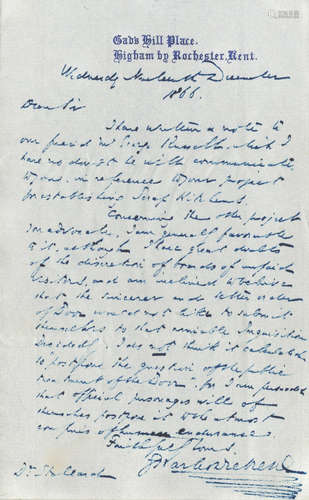 Gad's Hill Place,
Higham by Rochester, Kent.
Wednesday Nineteenth December
1866.
Dear Sir
I have written a note to
our friend Mr George Russell, which I
have no doubt he will communicate
to you, in reference to your project
for establishing Soup Kitchens.
Concerning the other project
you advocate, I am generally favourable
to it, although I have great doubts
of the discretion of boards of unpaid
visitors, and am inclined to believe
that the sincerer and better order
of Poor would not like to submit
themselves to that amiable Inquisition
Decidedly I do not think it calculated
to "postpone the question of the public
treatment of the Poor"; for I am persuaded
that official personages will of
themselves postpone it to the utmost
confines of human endurance.
Faithfully Yours
Charles Dickens
Dr. Stallard